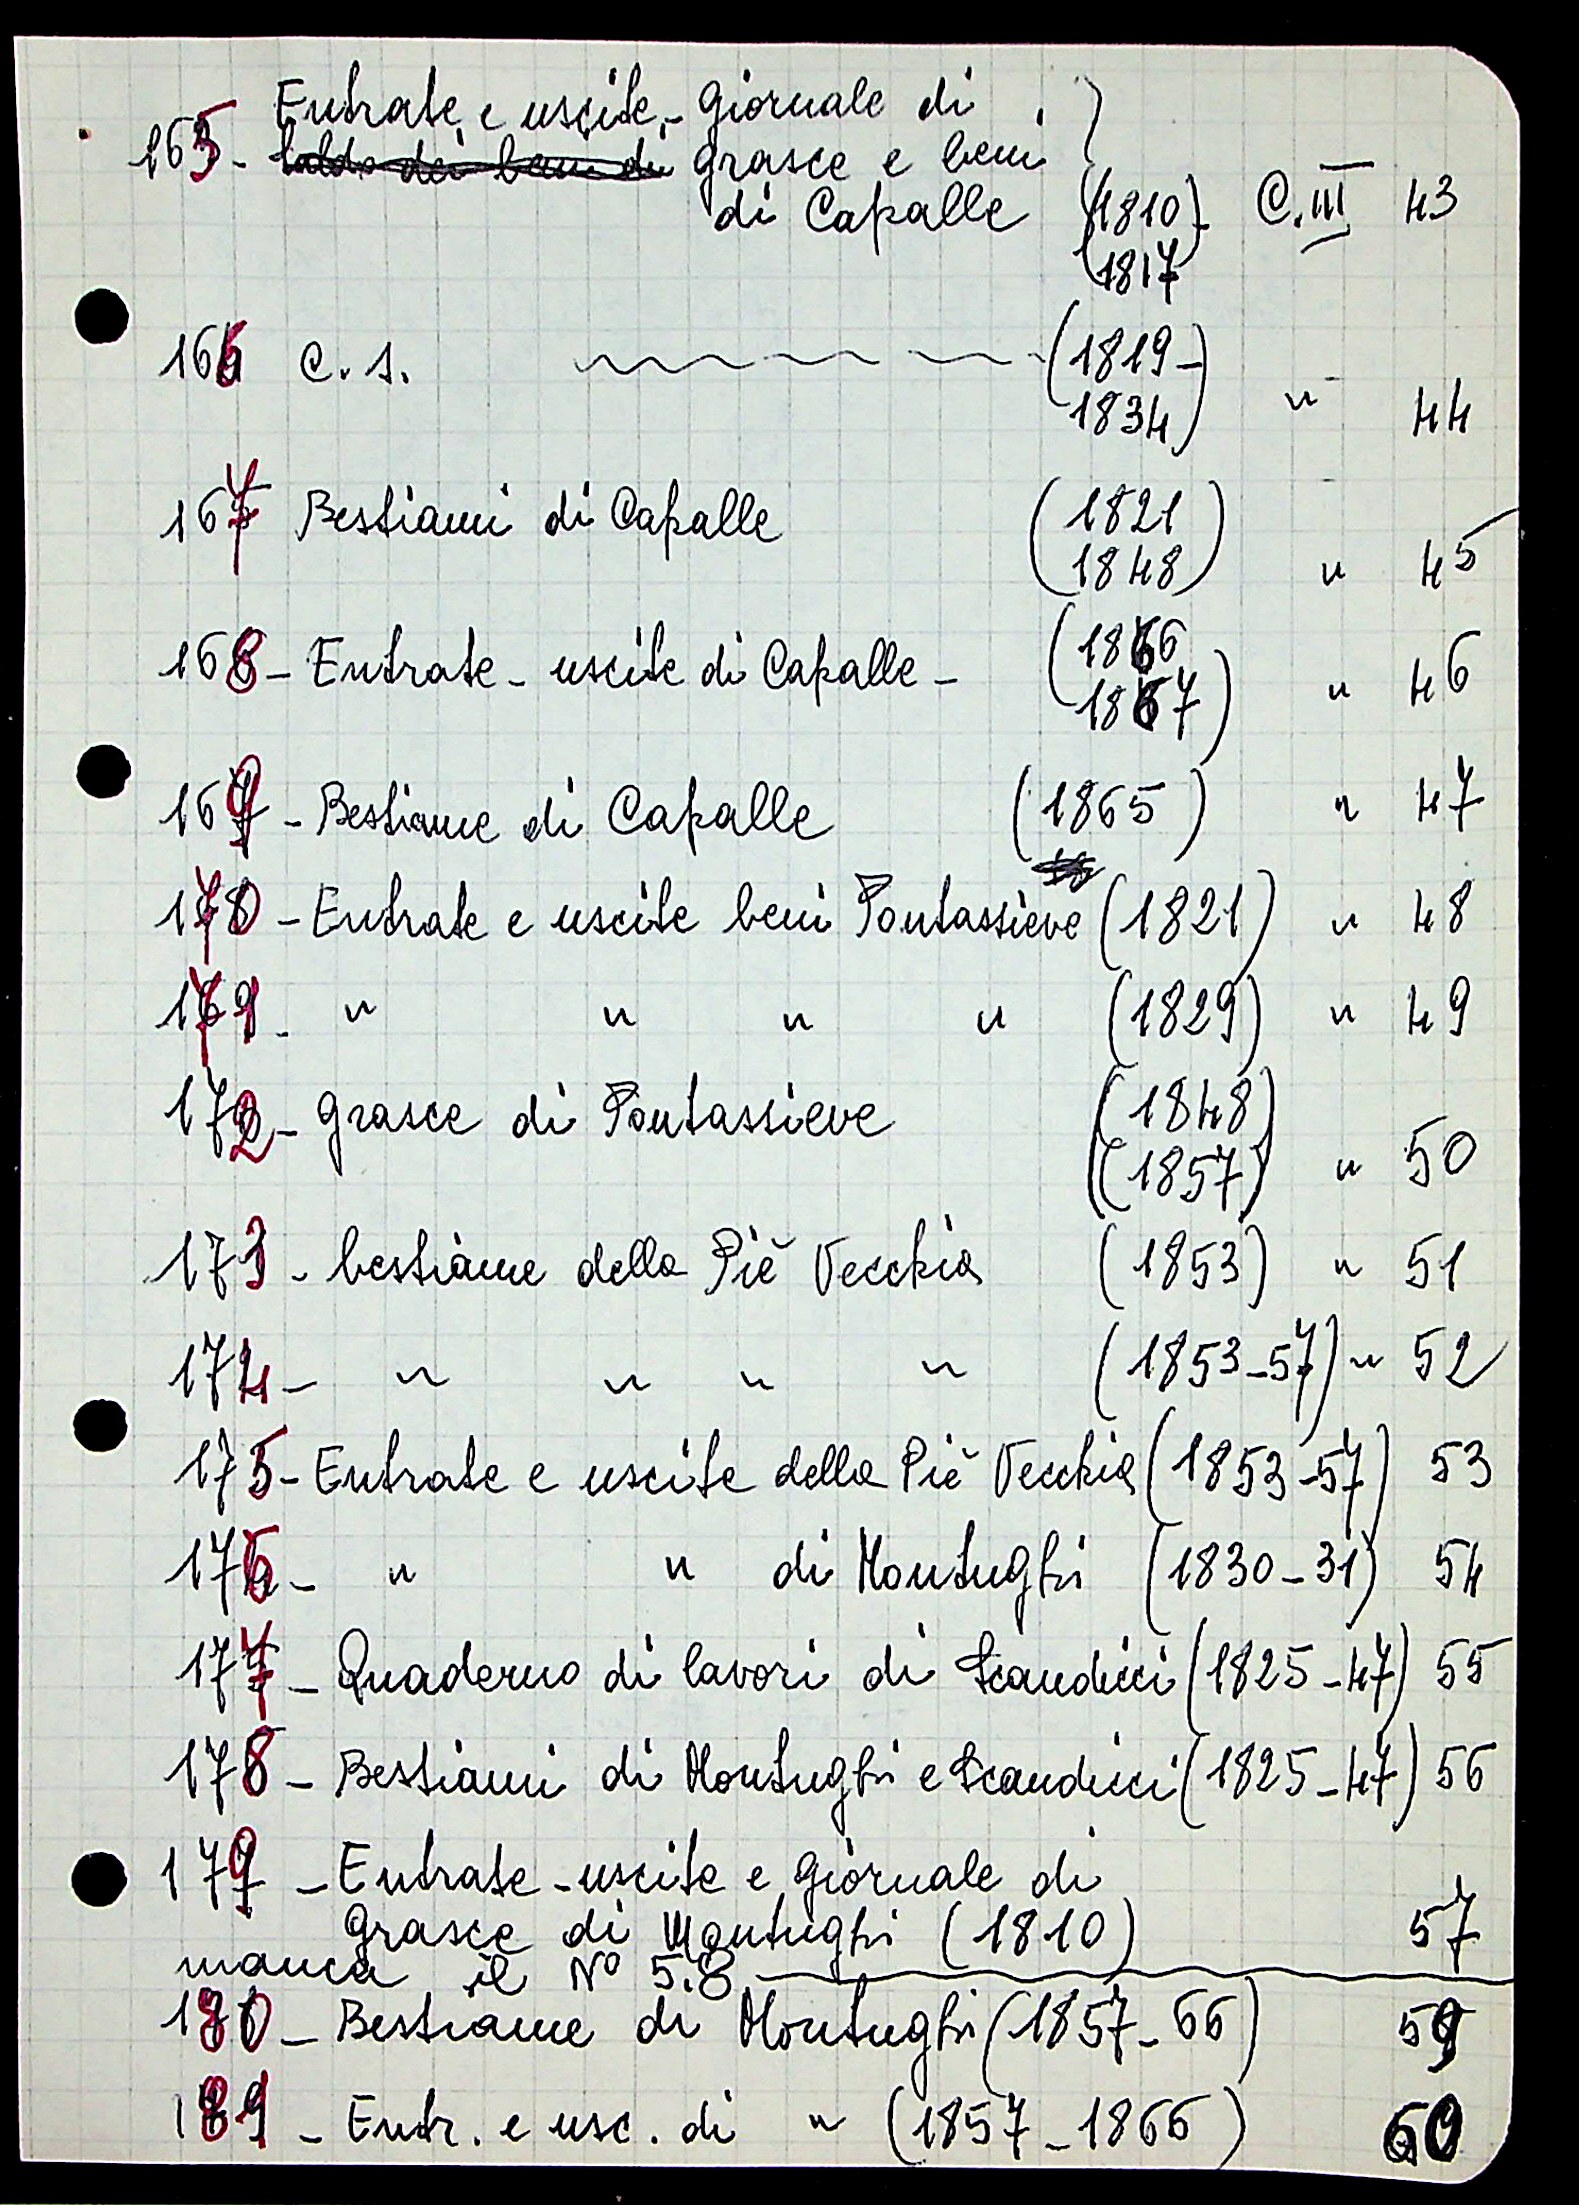 Entrate e uscite - giornale di
165 - saldo dei beni di grasce e beni
di Capalle (1810- C. III 43
1817)
166 C. s. (1819-
1834) " 44
167 Bestiami di Capalle (1821
1848) " 45
168 - Entrate - uscite di Capalle - (1866
1867) " 46
169 - Bestiame di Capalle (1865) " 47
170 - Entrate e uscite beni Pontassieve (1821) " 48
171 - " " " " (1829) " 49
172 - grasce di Pontassieve (1848)
(1857) " 50
173 - bestiame della Piè Vecchia (1853) " 51
174 - " " " " (1853-57) " 52
175 - Entrate e uscite della Piè Vecchia (1853-57) 53
176 - " " di Montughi (1830-31) 54
177 - Quaderno di lavori di Scandicci (1825-47) 55
178 - Bestiami di Montughi e Scandicci (1825-47) 56
179 - Entrate - uscite e giornale di
grasce di Montughi (1810) 57
manca il N° 58
180 - Bestiame di Montughi (1857-66) 59
181 - Entr. e usc. di " (1857-1866) 60